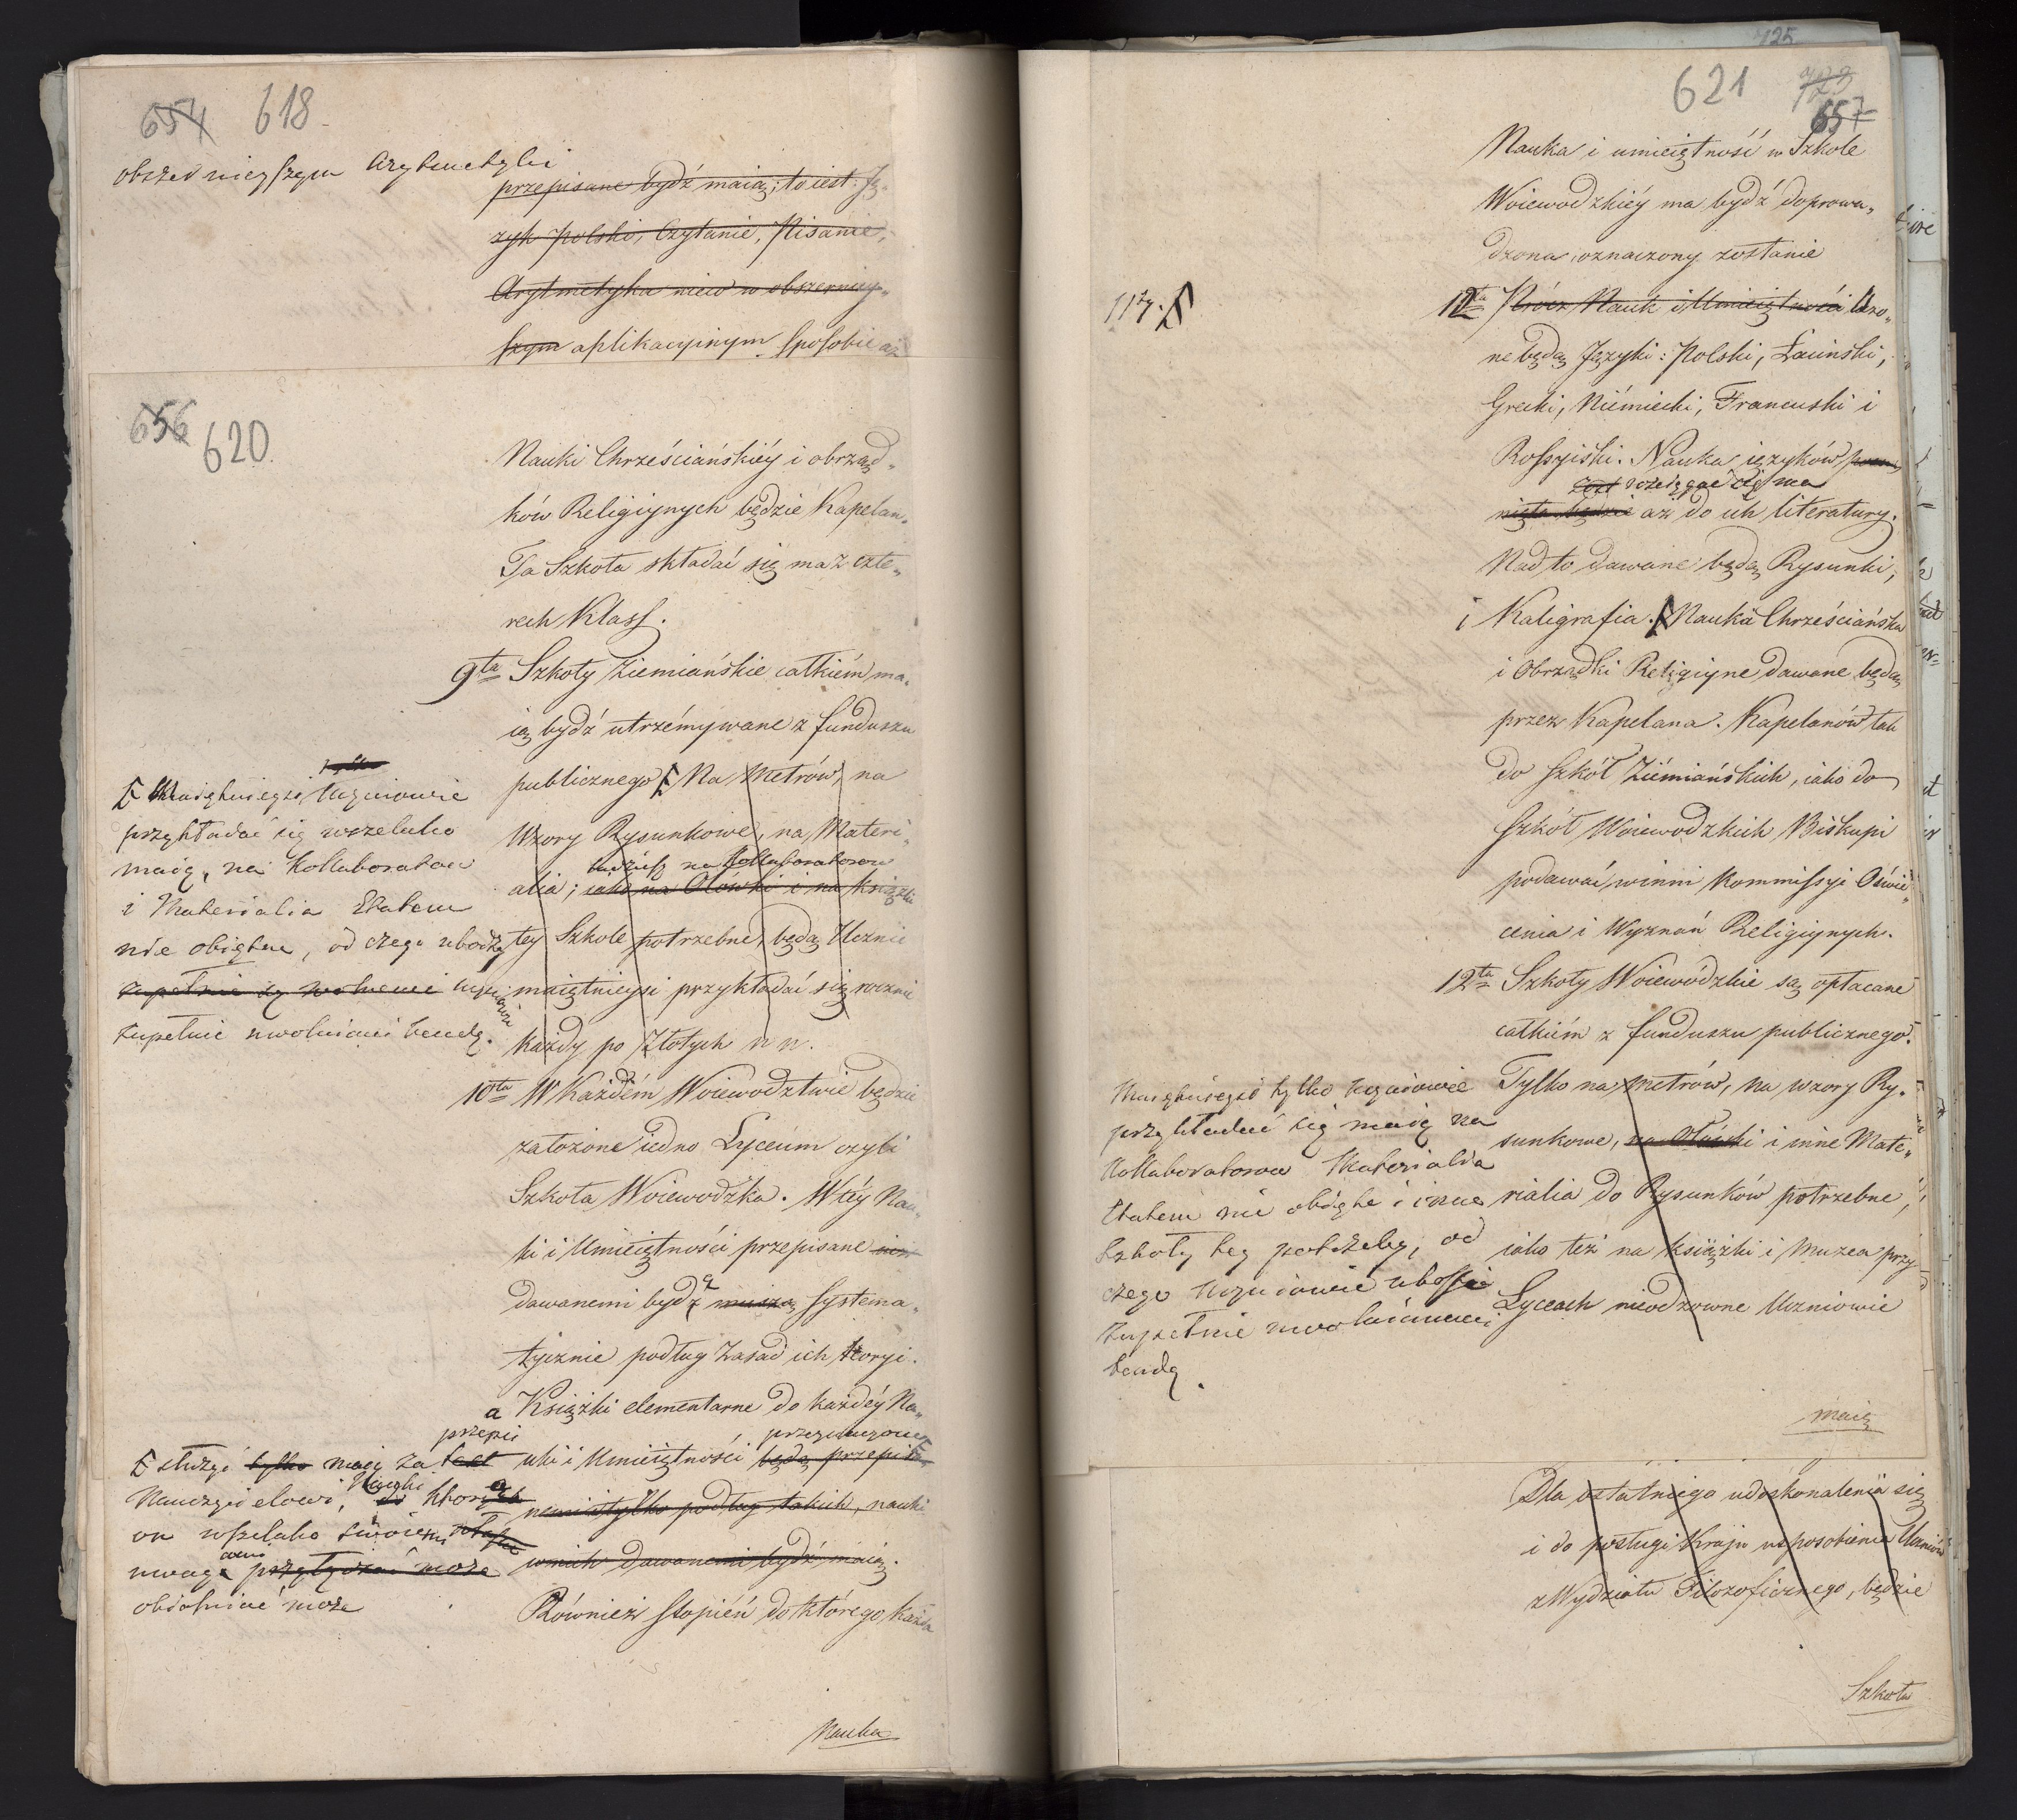 654 618
obszernieyszym Arytmetyki
przepisane bydź maią; to iest: Ję-
zyk Polski, Czytanie, Pisanie,
Arytmetyka nieco w obszerniey-
szym aplikacyinym sposobie aż
656 620
Nauki Chrześciańskiéy i obrząd-
ków Religiynych będzie Kapelan.
Ta Szkoła składać się ma z czte-
rech Klass.
9ta Szkoły Ziemiańskie całkiém ma-
ią bydź utrzémywane z funduszu
publicznego Na Metrów, na
Wzory Rysunkowe, na Materi-
tudzież na Kollaboratorow
alia; iako na Ołówki i na książki
tey Szkole potrzebne, będą Ucznie
maiętnieysi przykładać się rocznie
każdy po Złotych n n.
tylko
Maiętnieysi Uczniowie
przykładać się wszelako
maią, na Kollaboratorow
i Materialia Etatem
nie obięte, od czego ubodzy
zupełnie są wolnemi uczniowie
zupełnie uwolnieni bendą.
10ta W Każdém Woiewodztwie będzie
założone iedno Lyceum czyli
Szkoła Woiewodzka. W téy Nau-
ki i Umieiętności przepisane
dawanemi bydź muszą systema-
tycznie podług Zasad ich teoryi.
a Książki elementarne do każdéy Na-
przeznaczone
uki i Umieiętności będą przepisa-
nemi i tylko podług takich, nauki
w nich dawanemi bydź maią.
Również stopień do którego każda
przepis
służyć tylko maią za text
Nauczycielowi, który
on wszelako swoiemi
uwagami przyłączać może
obiaśniać może
Nauka
725
621 723
657
Nauka i umieiętność w Szkole
Woiewodzkiéy ma bydź doprowa-
dzona, oznaczony zostanie
11ty.
12ta Prócz Nauk i Umieiętności Uczo-
ne będą Języki: Polski, Łaciński,
Grecki, Niémiecki, Francuski i
Rossyiski. Nauka ięzyków
rościągać się ma
nięta będzie aż do ich literatury.
Nad to dawane będą Rysunki,
i Kaligrafia. Nauka Chrześciańska
i Obrządki Religiyne dawane będą
przez Kapelana. Kapelanów tak
do Szkół Ziémiańskich, iako do
Szkół Woiewodzkich Biskupi
podawać winni Kommissyi Oświe-
cenia i Wyznań Religiynych.
12ta Szkoły Woiewódzkie są opłacane
całkiém z funduszu publicznego.
Tylko na Metrów, na wzory Ry-
sunkowe, na Ołówki i inne Mate-
rialia do Rysunków potrzebne,
iako też na książki i Muzea przy
Lyceach nieodzowne Uczniowie
Maiętnieysi tylko Uczniowie
przykładać się maią na
Kollaboratorow Materialia
Etatem nie obięte i inne
Szkoły tey potrzeby, od
czego Uczniowie ubossi
zupełnie uwolnionemi
bendą.
maią
Dla ostatniego udoskonalenia się
i do posługi Kraju usposobienia Uczniów
z Wydziału Filozoficznego, będzie
Szkoła